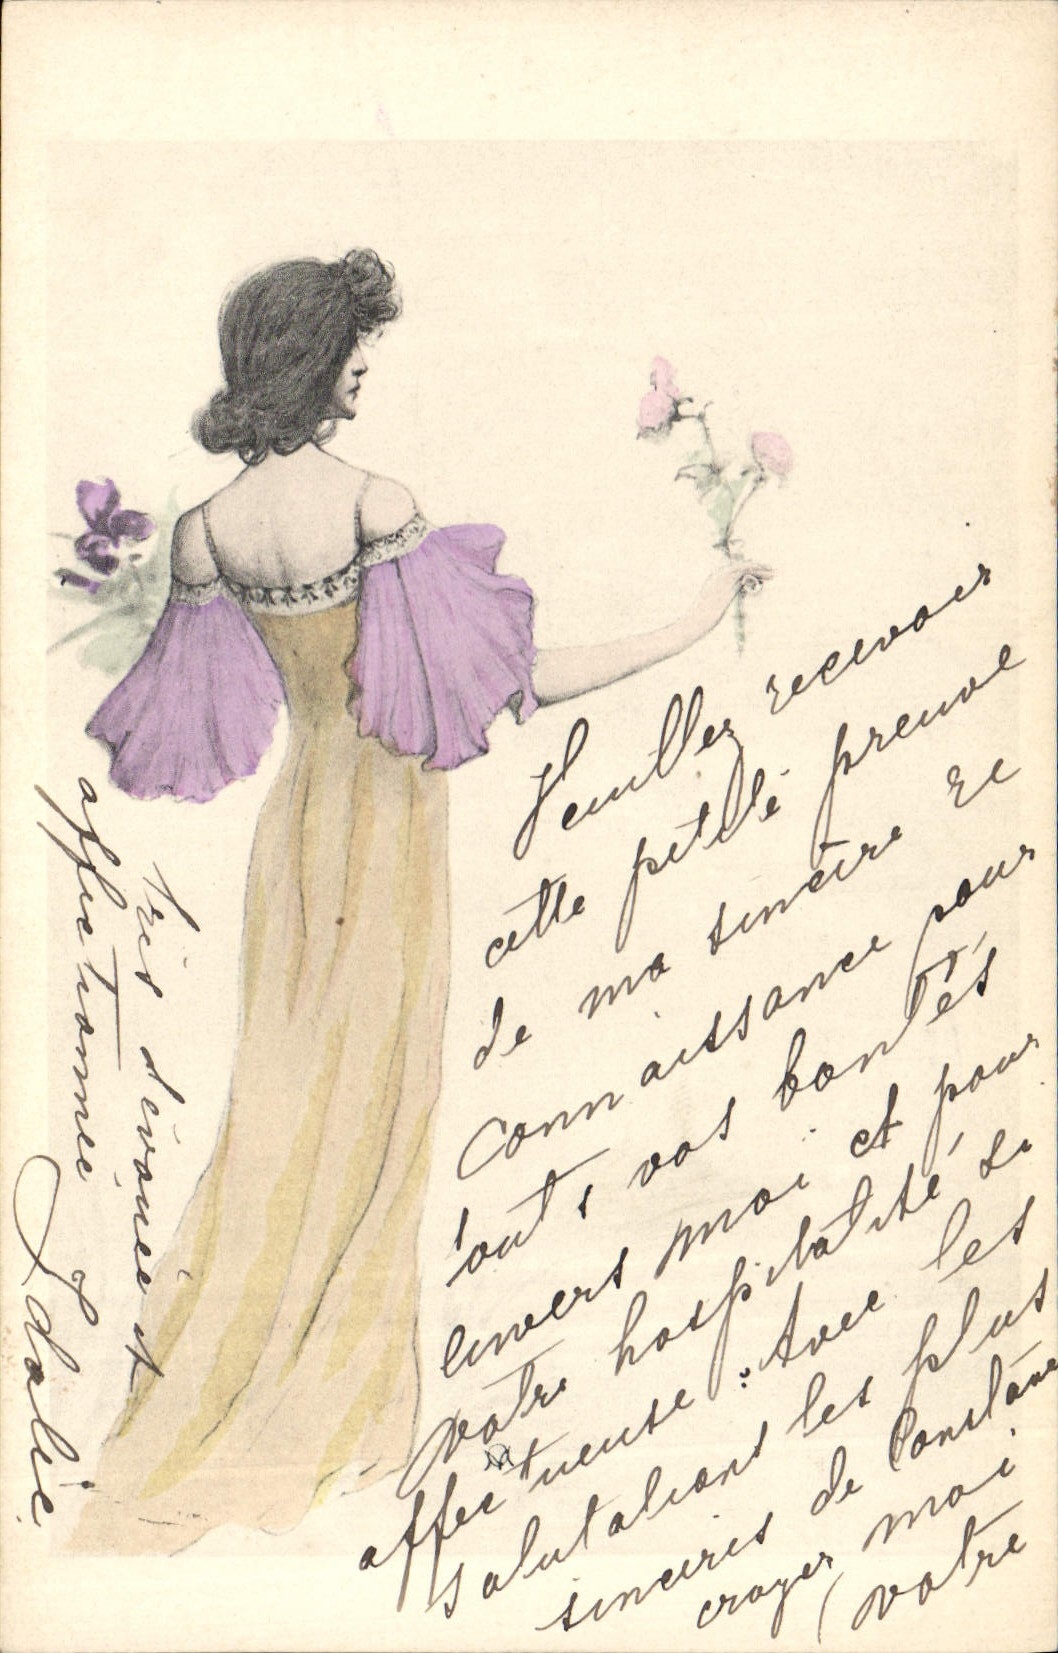 Veuillez recevoir
cette petite preuve
de ma sincère re
connaissance pour
touts vos bontés
envers moi et pour
votre hospitalité si
affectueuse. Avec les
salutations les plus
sincères de Constane
croyez moi
(votre
très dévouée et
affectionnée
Idalie.